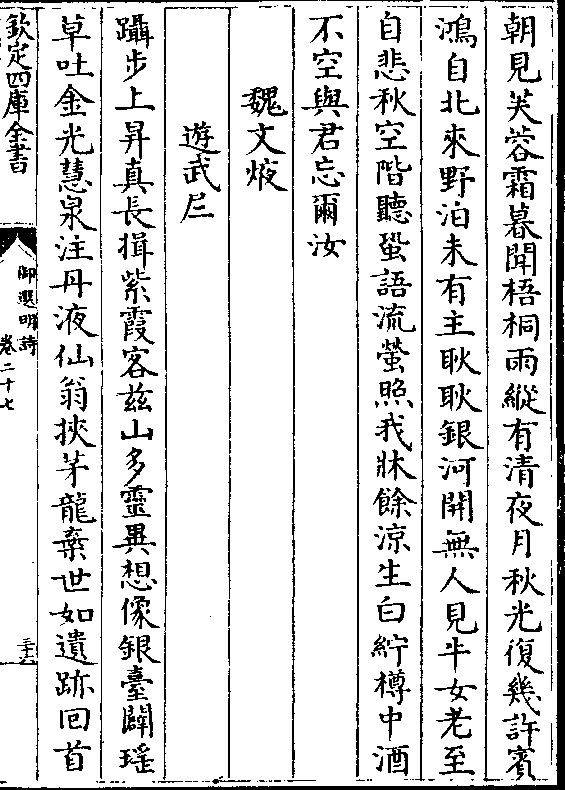 朝見芙蓉霜暮聞梧桐雨縱有清夜月秋光復幾許賓
鴻自北來野泊未有主耿耿銀河開無人見牛女老至
自悲秋空階聽蛩語流螢照我牀餘涼生白紵樽中酒
不空與君忘爾汝
魏文焲
遊武𡰥
躡步上昇真長揖紫霞客兹山多靈異想像銀臺闢瑶
草吐金光慧泉注丹液仙翁挾茅龍棄世如遺跡回首
欽定四庫全書
御選明詩
卷二十七
三十六